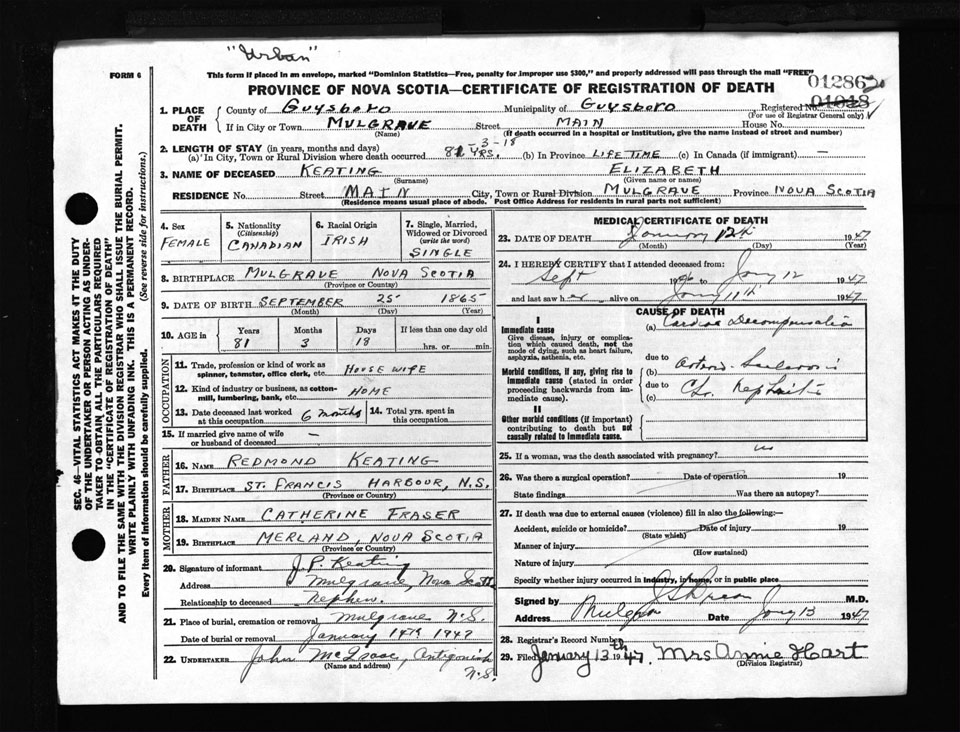 "Urban"
FORM 6
This form if placed in an envelope, marked "Dominion Statistics—Free, penalty for improper use $300," and properly addressed will pass through the mail "FREE"
012862
PROVINCE OF NOVA SCOTIA—CERTIFICATE OF REGISTRATION OF DEATH
01018
1. PLACE OF DEATH County of Guysboro Municipality of Guysboro Registered No.
(For use of Registrar General only)
If in City or Town MULGRAVE Street MAIN House No.
(Name) (If death occurred in a hospital or institution, give the name instead of street and number)
2. LENGTH OF STAY (in years, months and days)
(a) In City, Town or Rural Division where death occurred 81 YRS. -3-18 (b) In Province LIFE TIME (c) In Canada (if immigrant) —
3. NAME OF DECEASED KEATING ELIZABETH
(Surname) (Given name or names)
RESIDENCE No. Street MAIN City, Town or Rural Division MULGRAVE Province NOVA SCOTIA
(Residence means usual place of abode. Post Office Address for residents in rural parts not sufficient)
4. Sex FEMALE
5. Nationality (Citizenship) CANADIAN
6. Racial Origin IRISH
7. Single, Married, Widowed or Divorced (write the word) SINGLE
8. BIRTHPLACE MULGRAVE NOVA SCOTIA
(Province or Country)
9. DATE OF BIRTH SEPTEMBER 25 1865
(Month) (Day) (Year)
10. AGE in Years 81 Months 3 Days 18 If less than one day old hrs. or min.
OCCUPATION
11. Trade, profession or kind of work as spinner, teamster, office clerk, etc. HOUSE WIFE
12. Kind of industry or business, as cotton-mill, lumbering, bank, etc. HOME
13. Date deceased last worked at this occupation 6 months
14. Total yrs. spent in this occupation
15. If married give name of wife or husband of deceased —
FATHER
16. NAME REDMOND KEATING
17. BIRTHPLACE ST. FRANCIS HARBOUR, N.S.
(Province or Country)
MOTHER
18. MAIDEN NAME CATHERINE FRASER
19. BIRTHPLACE MERLAND, NOVA SCOTIA
(Province or Country)
20. Signature of informant J.P. Keating
Address Mulgrave, Nova Scotia
Relationship to deceased Nephew.
21. Place of burial, cremation or removal Mulgrave N.S.
Date of burial or removal January 14th 1947
22. UNDERTAKER John McIsaac, Antigonish N.S.
(Name and address)
MEDICAL CERTIFICATE OF DEATH
23. DATE OF DEATH January 12th 1947
(Month) (Day) (Year)
24. I HEREBY CERTIFY that I attended deceased from:
Sept 1946 to Jany 12 1947
and last saw her alive on Jany 11th 1947
CAUSE OF DEATH
I
Immediate cause
Give disease, injury or complication which caused death, not the mode of dying, such as heart failure, asphyxia, asthenia, etc.
(a) Cardiac Decompensation
due to
Morbid conditions, if any, giving rise to immediate cause (stated in order proceeding backwards from immediate cause).
(b) Arterio-Sclerosis
due to
(c) Chr. Nephritis
II
Other morbid conditions (if important) contributing to death but not causally related to immediate cause.
25. If a woman, was the death associated with pregnancy? no
26. Was there a surgical operation? Date of operation 19
State findings Was there an autopsy?
27. If death was due to external causes (violence) fill in also the following:—
Accident, suicide or homicide? Date of injury 19
(State which)
Manner of injury
(How sustained)
Nature of injury
Specify whether injury occurred in industry, in home, or in public place
Signed by M.D.
Address Mulgrave Date Jany 13 1947
28. Registrar's Record Number
29. Filed January 13th 1947. Mrs Annie Hart
(Division Registrar)
SEC. 46—VITAL STATISTICS ACT MAKES IT THE DUTY
OF THE UNDERTAKER OR PERSON ACTING AS UNDER-
TAKER TO OBTAIN ALL THE PARTICULARS REQUIRED
IN THE "CERTIFICATE OF REGISTRATION OF DEATH"
AND TO FILE THE SAME WITH THE DIVISION REGISTRAR WHO SHALL ISSUE THE BURIAL PERMIT.
WRITE PLAINLY WITH UNFADING INK. THIS IS A PERMANENT RECORD.
Every item of information should be carefully supplied. (See reverse side for instructions.)